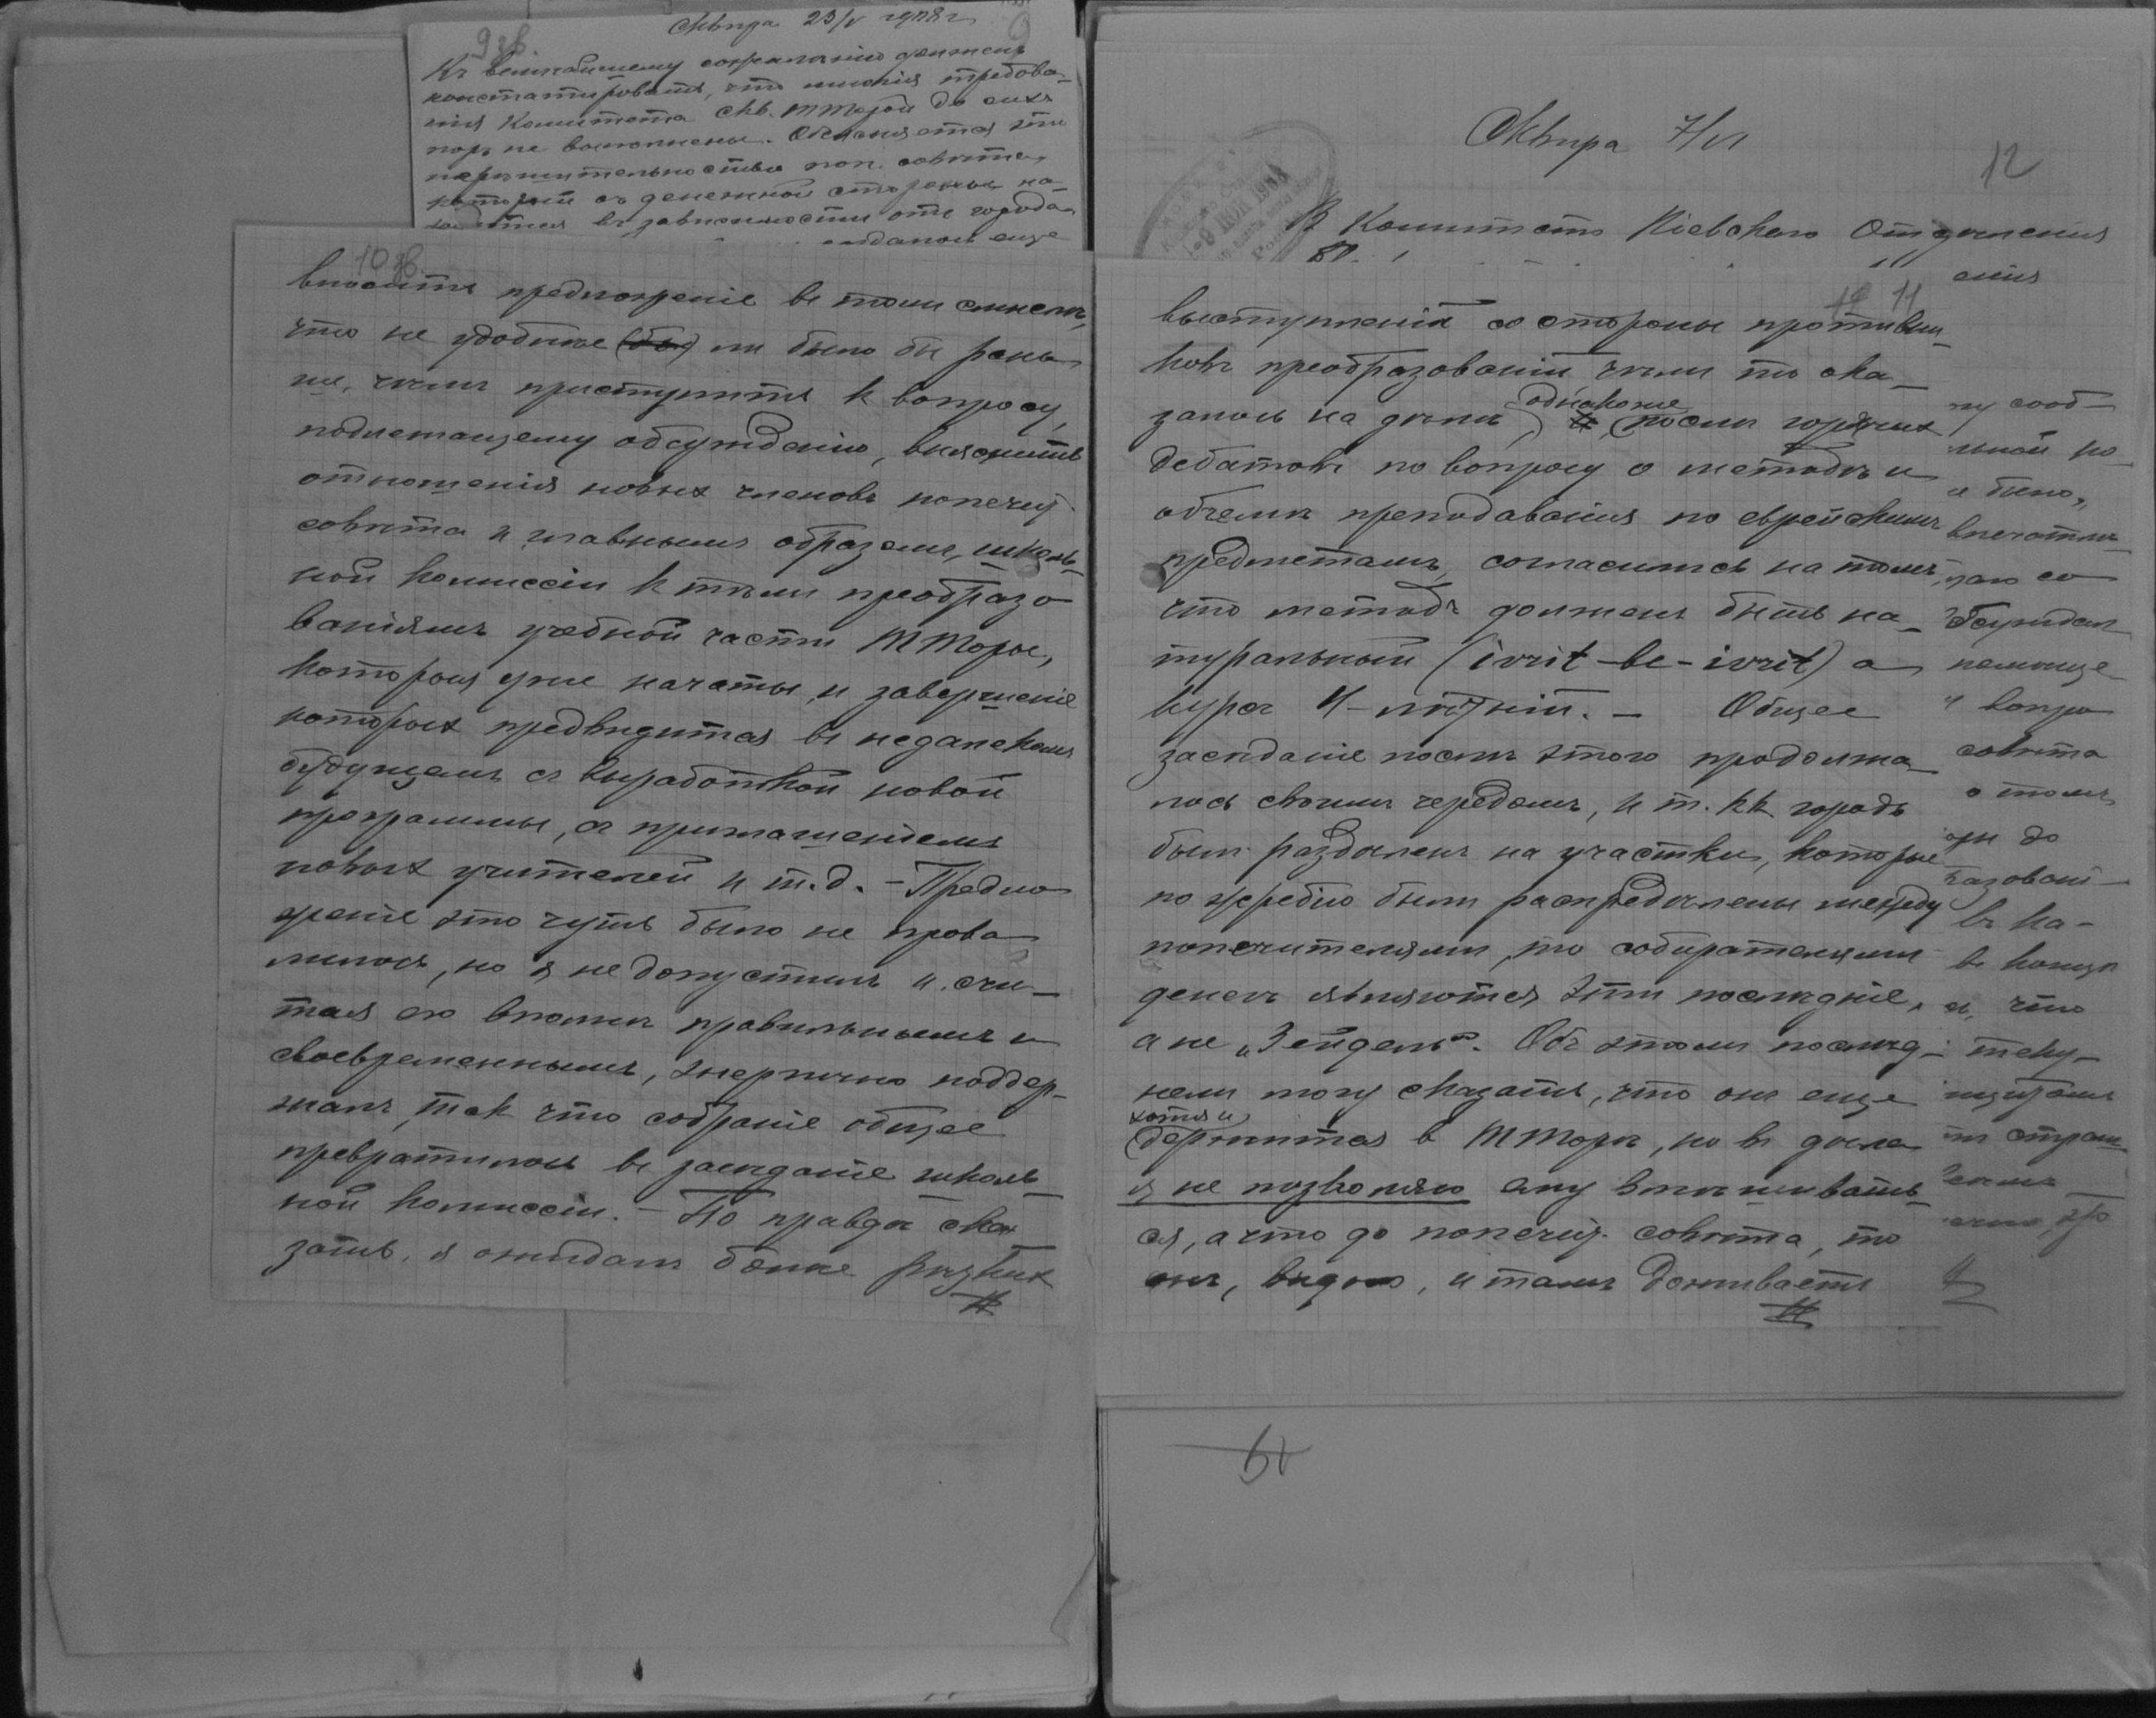 9 зв.
Сквира 23/V 1908 г.
9
Къ величайшему сожалѣнію долженъ
констатировать, что многія требова-
нія Комитета Скв. ТТорой до сихъ
поръ не выполнены. Объясняется это
нерѣшительностью поп. совѣта,
который съ денежной стороны на-
ходится въ зависимости отъ города
еще
10 зв.
вноситъ предложеніе въ томъ смыслѣ,
что не удобнѣе (бы) ли было бы рань-
ше, чѣмъ приступить к вопросу,
подлежащему обсужденію, выяснить
отношенія новыхъ членовъ попечит.
совѣта и главнымъ образомъ, школь-
ной комиссіи к тѣмъ преобразо-
ваніямъ учебной части ТТоры,
которыя уже начаты, и завершеніе
которых предвидится въ недалекомъ
будущемъ съ выработкой новой
программы, съ приглашеніемъ
новых учителей и т.д. – Предло-
женіе это чуть было не прова-
лилось, но я не допустилъ и, счи-
тая его вполнѣ правильнымъ и
своевременнымъ, энергично поддер-
жалъ, так что собраніе общее
превратилось въ засѣданіе школь-
ной комиссіи. – По правдѣ ска-
зать, я ожидалъ болѣе рѣзких
Сквира 7/VI
12
В Комитетъ Кіевскаго Отдѣленія
11
выступленій со стороны противни-
ковъ преобразованій чѣмъ то ока-
залось на дѣлѣ, однакоже
послѣ горячих
дебатовъ по вопросу о методѣ и
объемѣ преподаванія по еврейскимъ
предметамъ, согласились на томъ,
что методъ долженъ быть на-
туральный (ivrit-be-ivrit) а
курсъ 4-лѣтній. – Общее
засѣданіе послѣ этого продолжа-
лось своимъ чередомъ, и т. кк городъ
былъ раздѣленъ на участки, которые
по жребію были распредѣлены между
попечителями, то собирателями
денегъ являются эти послѣдніе,
а не „Зейдель". Объ этомъ послѣд-
немъ могу сказать, что онъ еще
хотя и
держится в ТТорѣ, но въ дѣла
я не позволяю ему вмѣшивать-
ся, а что до попечит. совѣта, то
онъ, видно, и тамъ доживаетъ
енія
му сооб-
льной ко-
и было,
впечатлѣ-
обсуждал
вопро
совѣта
о томъ,
до
въ ка-
въ концѣ
что
теку-